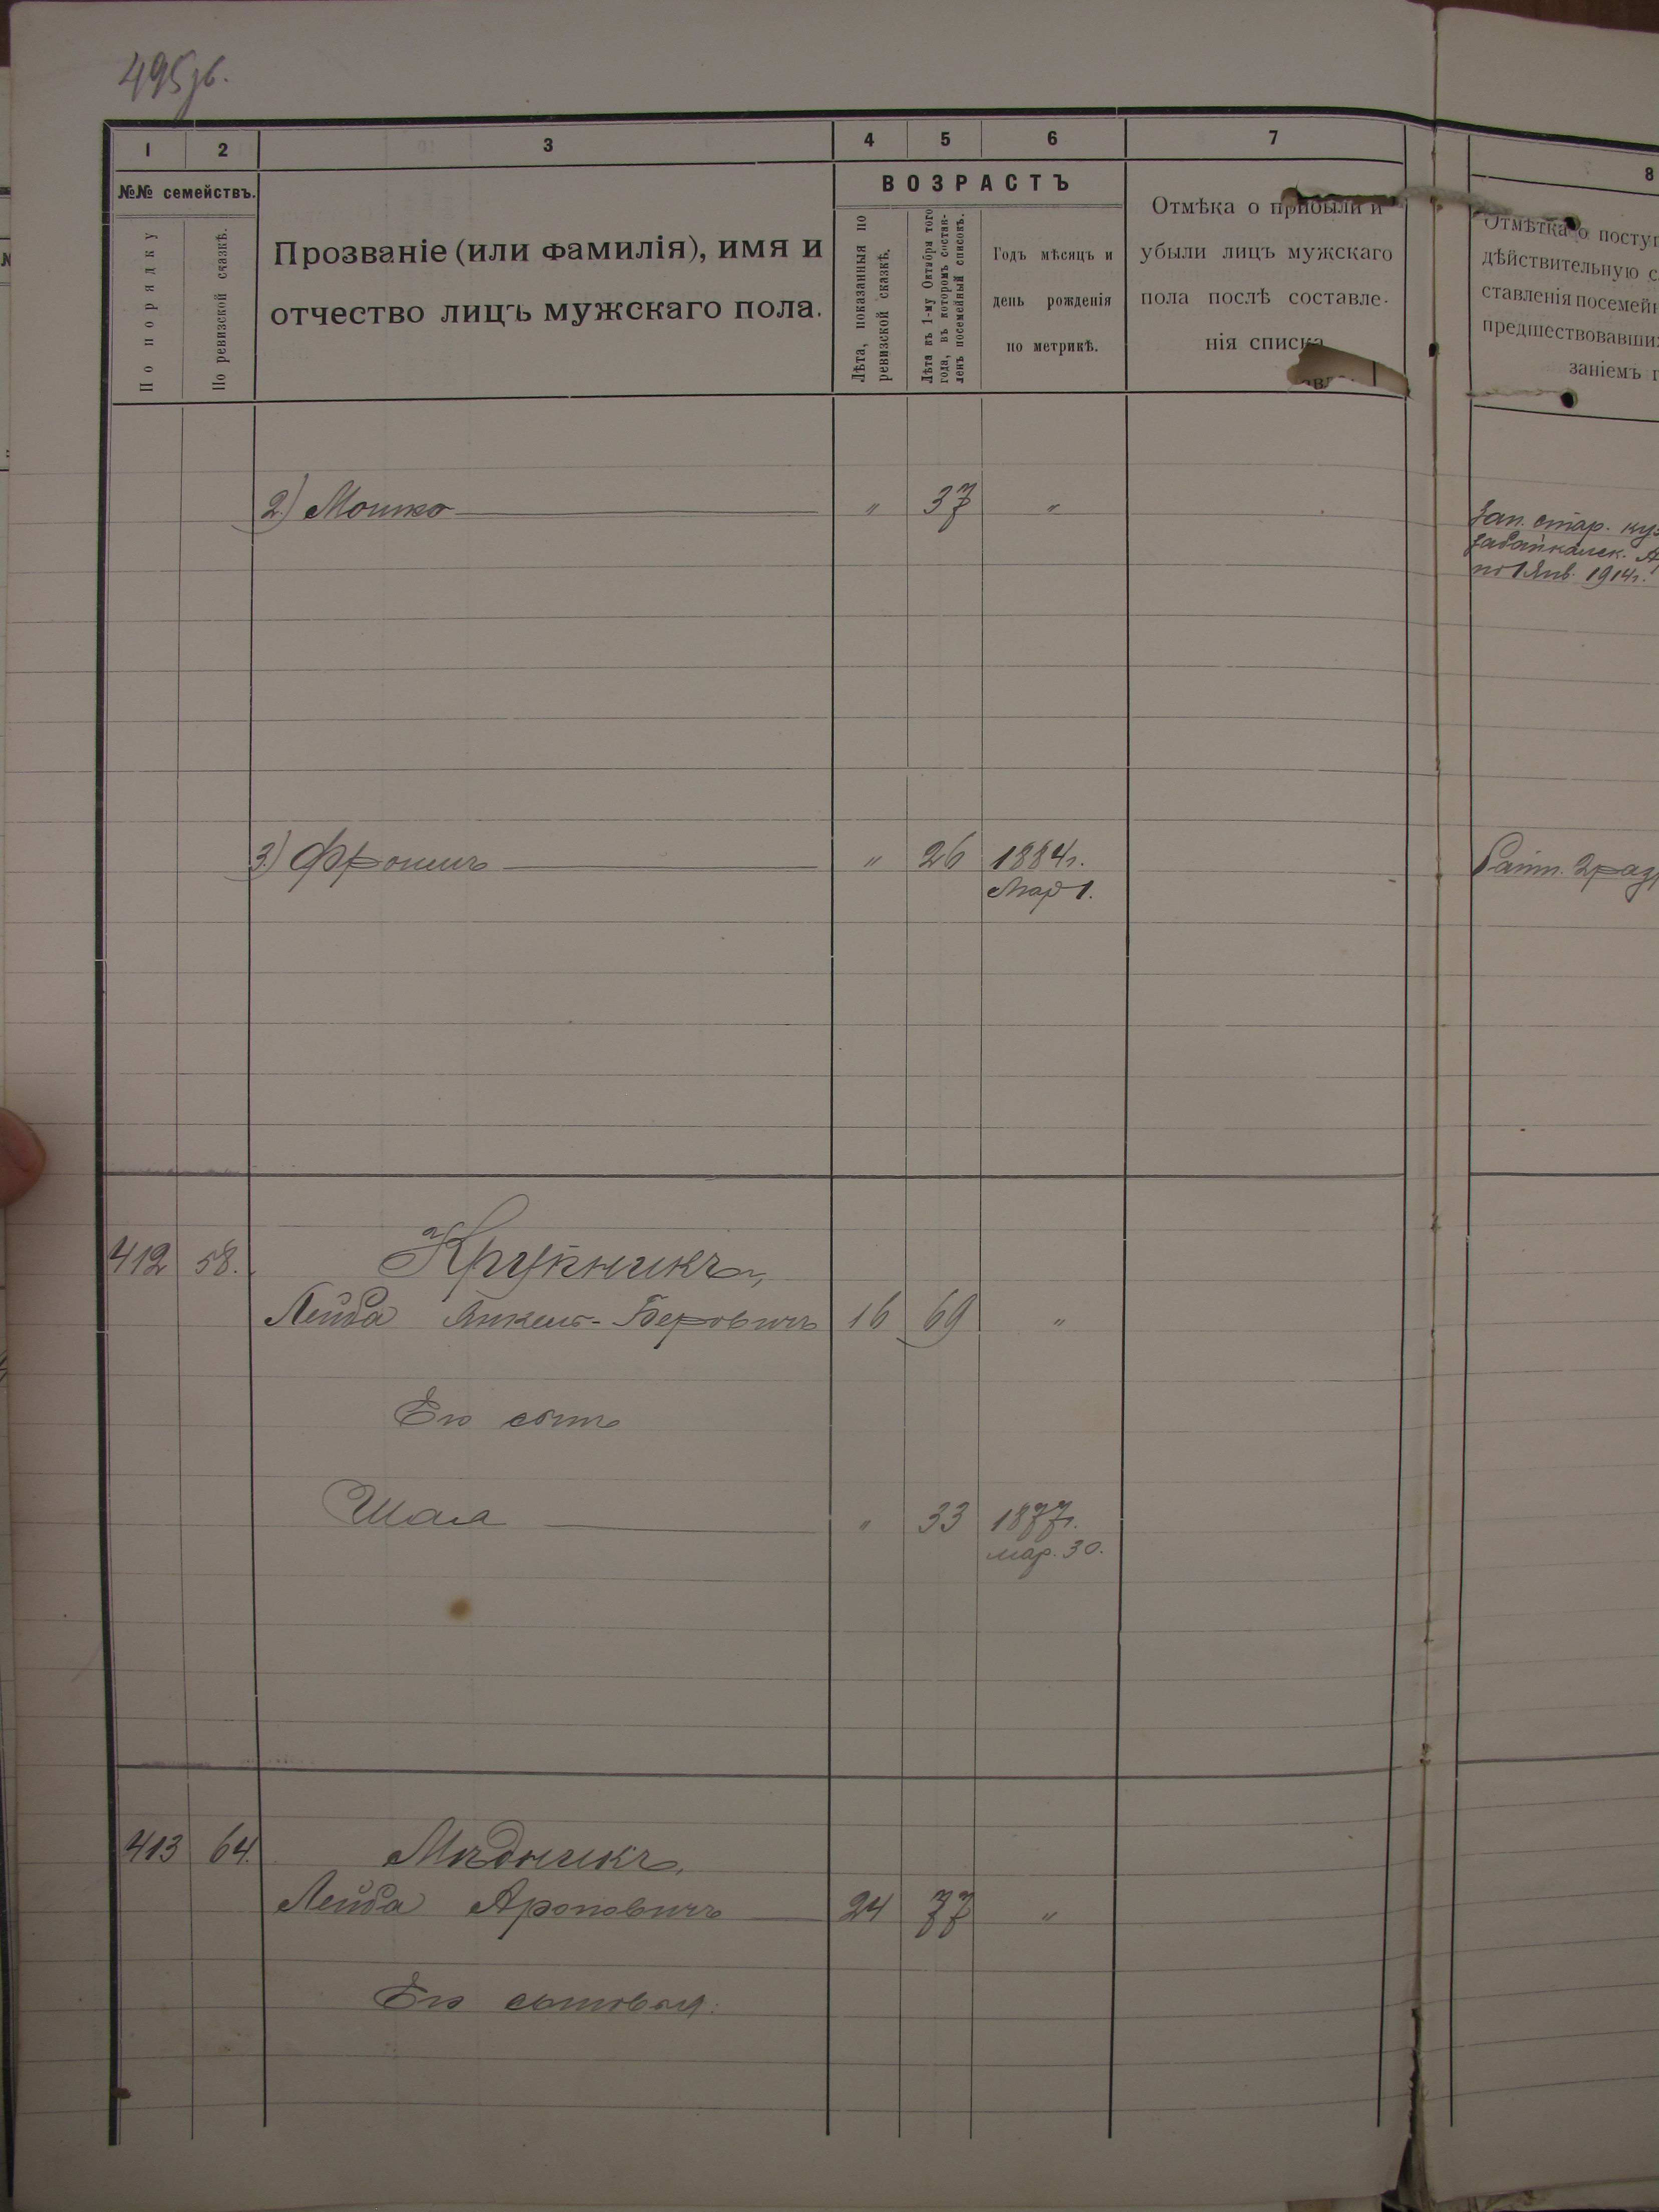 495об.
1 2 3 4 5 6 7 8
№№ семействъ.
По порядку
По ревизской сказкѣ.
Прозваніе (или фамилія), имя и
отчество лицъ мужскаго пола.
ВОЗРАСТЪ
Лѣта, показанныя по
ревизской сказкѣ.
Лѣта къ 1-му Октября того
года, въ которомъ состав-
ленъ посемейный списокъ.
Годъ мѣсяцъ и
день рожденія
по метрикѣ.
Отмѣка о прибыли и
убыли лицъ мужскаго
пола послѣ составле-
нія списка
Отмѣтка о поступ
дѣйствительную с
ставленія посемейн
предшествовавши
заніемъ г
2) Мошко " 37 "
Зап. стар.
Забайкальск.
по 1 Янв. 1914г.
3) Фроимъ " 26 1884г.
Мар 1.
Ратн. 2 разр
412 58. Крупникъ,
Лейба Янкель-Беровичъ 16 69 "
Его сынъ
Шая " 33 1877г.
мар. 30.
413 64. Мѣдникъ,
Лейба Ароновичъ 24 77 "
Его сыновья: